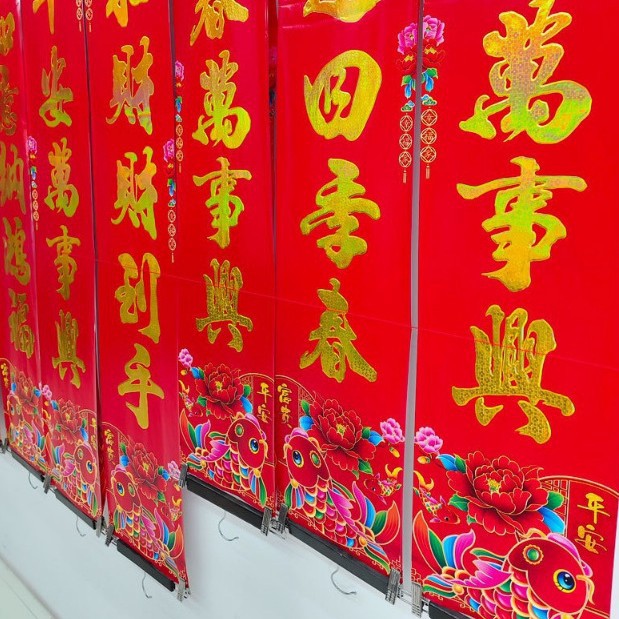 萬事興
平安
四季春
富貴
春萬事興
平安
財財到手
平安
安萬事興
納鴻福